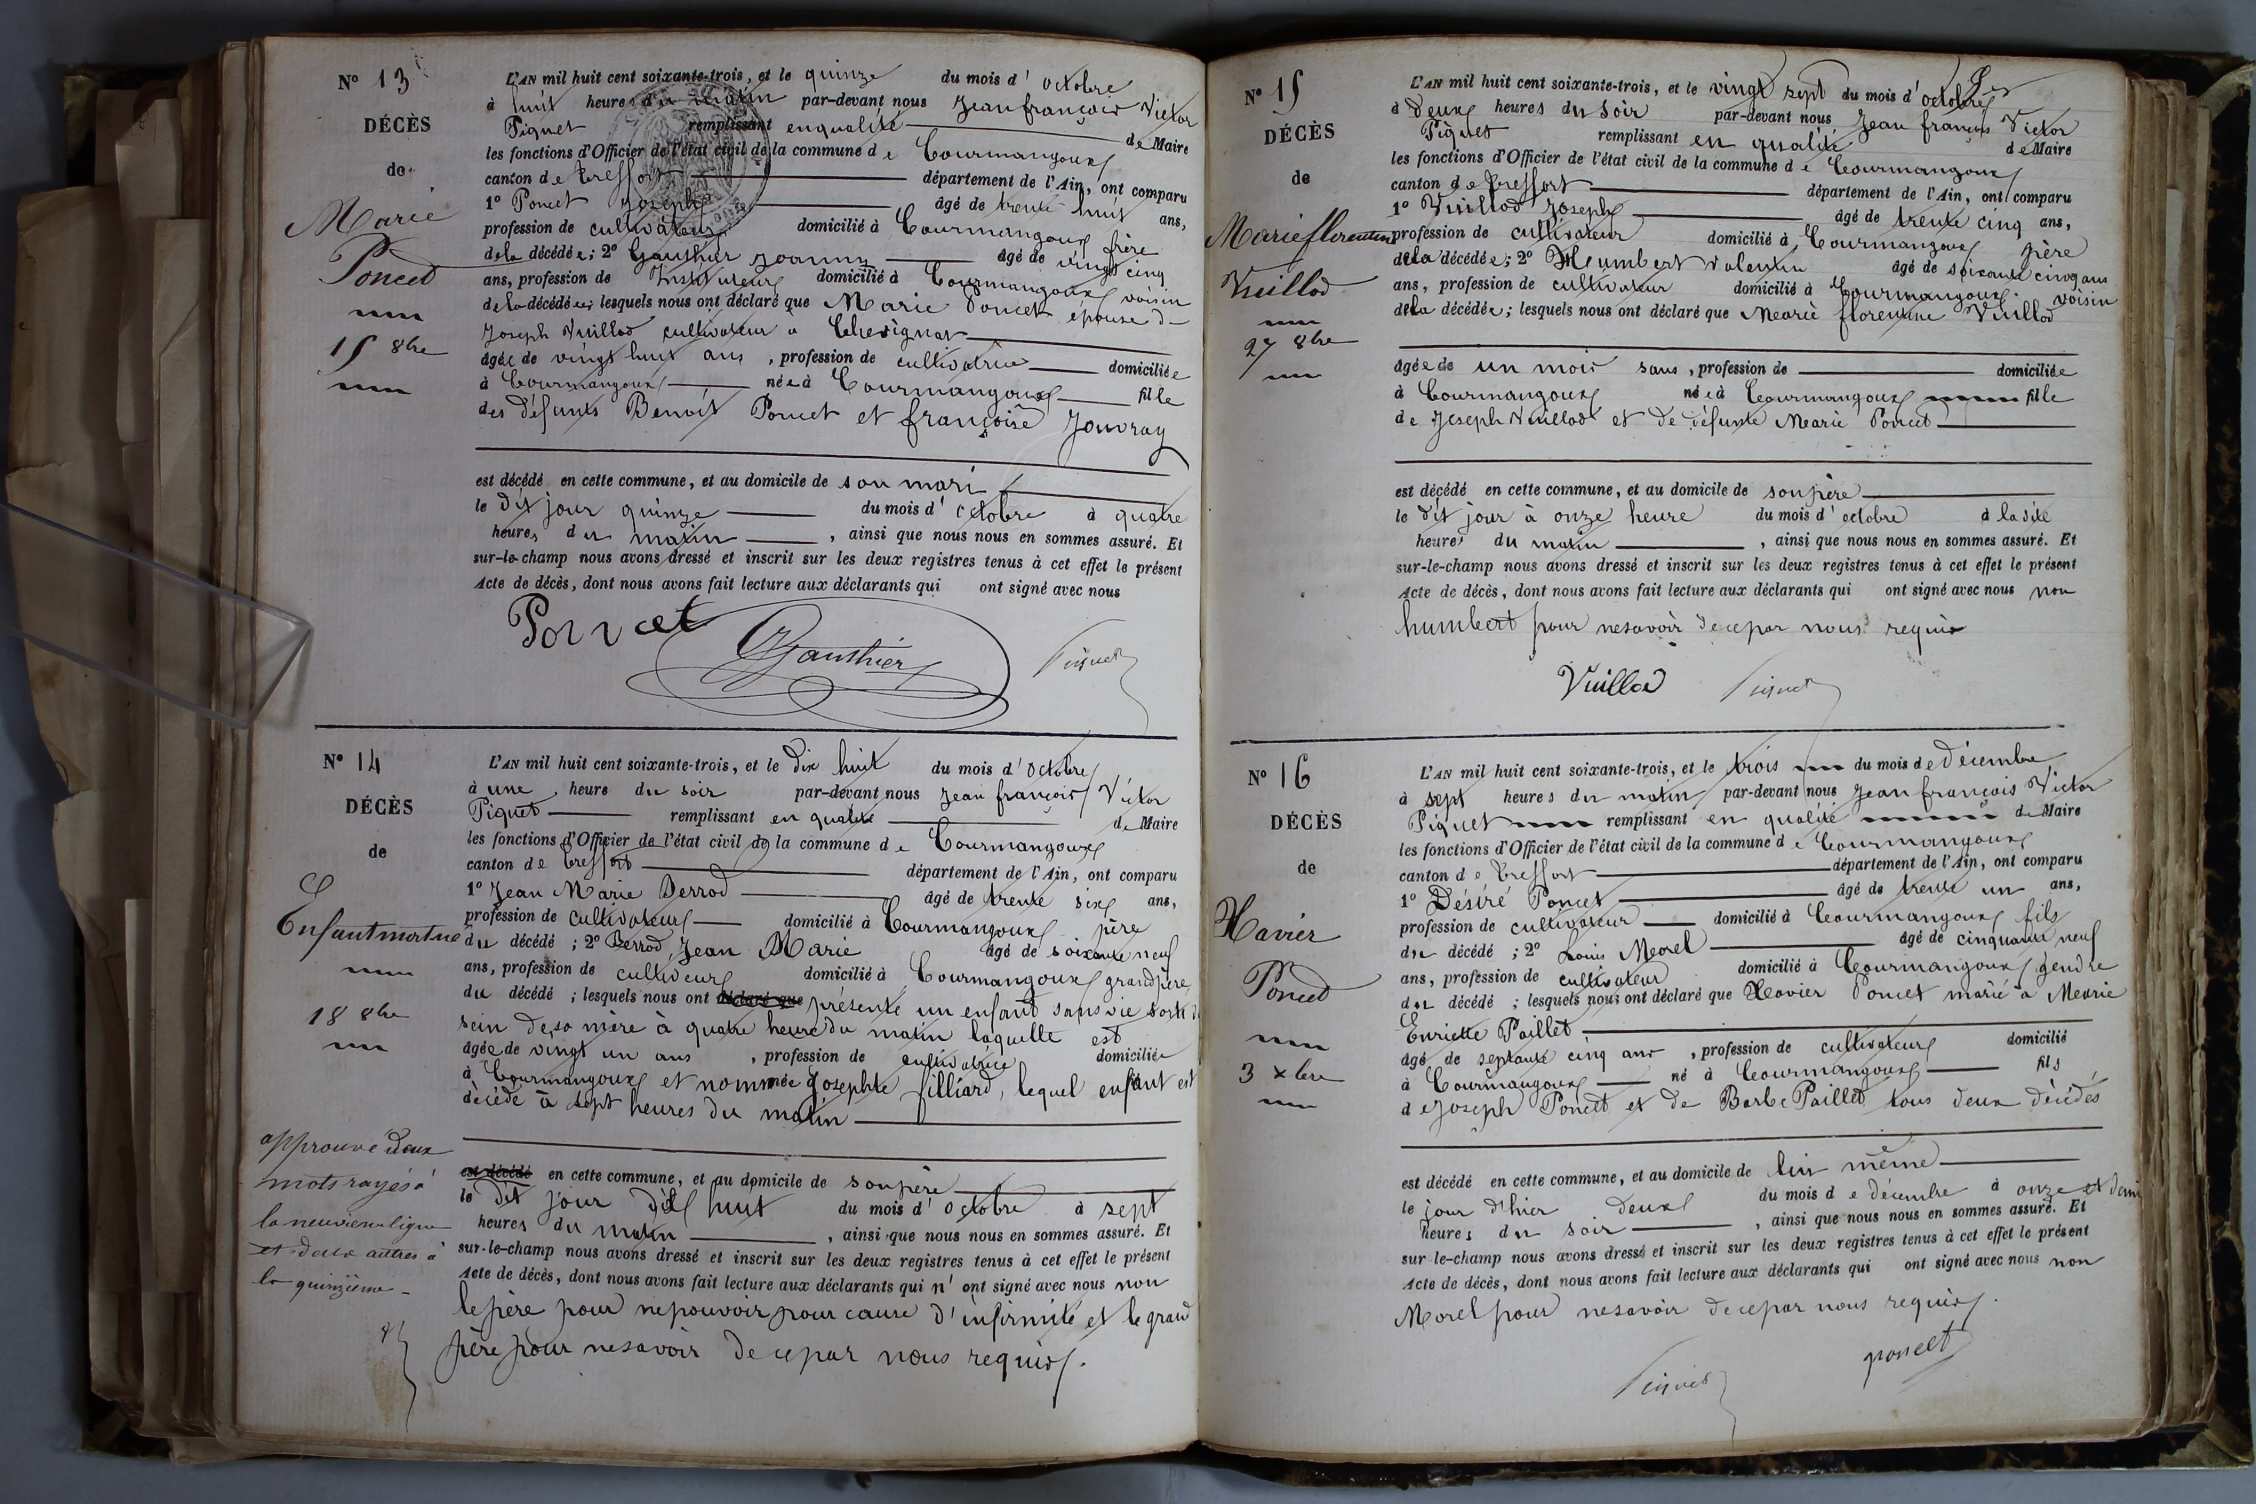 N° 13
DÉCÈS
de
Marie
Poncet
15 8bre
L'AN mil huit cent soixante-trois, et le quinze du mois d'octobre
à huit heures du matin par-devant nous Jean françois Victor
Piquet remplissant en qualité de Maire
les fonctions d'Officier de l'état civil de la commune de Courmangoux
canton de treffort département de l'Ain, ont comparu
1° Poncet Joseph âgé de trente huit ans,
profession de cultivateur domicilié à Courmangoux frère
de la décédée; 2° Gauthier Joanny âgé de vingt cinq
ans, profession de Instituteur domicilié à Courmangoux voisin
de la décédée; lesquels nous ont déclaré que Marie Poncet épouse d
Joseph Vuillod cultivateur à Chevignat
âgée de vingt huit ans, profession de cultivatrice domiciliée
à Courmangoux née à Courmangoux fille
des défunts Benoît Poncet et françoise Jouvray
est décédé en cette commune, et au domicile de son mari
le dit jour quinze du mois d'octobre à quatre
heures du matin, ainsi que nous nous en sommes assuré. Et
sur-le-champ nous avons dressé et inscrit sur les deux registres tenus à cet effet le présent
Acte de décès, dont nous avons fait lecture aux déclarants qui ont signé avec nous
Poncet Gauthier Piquet
N° 14
DÉCÈS
de
Enfant mort né
18 8bre
L'AN mil huit cent soixante-trois, et le dix huit du mois d'octobre
à une heure du soir par-devant nous Jean françois Victor
Piquet remplissant en qualité de Maire
les fonctions d'Officier de l'état civil de la commune de Courmangoux
canton de treffort département de l'Ain, ont comparu
1° Jean Marie Berrod âgé de trente six ans,
profession de cultivateur domicilié à Courmangoux père
du décédé; 2° Berrod Jean Marie âgé de soixante neuf
ans, profession de cultiveur domicilié à Courmangoux grand père
du décédé; lesquels nous ont déclaré que présenté un enfant sans vie sorti du
sein de sa mère à quatre heure du matin laquelle est
âgée de vingt un ans, profession de cultivatrice domiciliée
à Courmangoux et nommée Josephte filliard, lequel enfant est
décédé à sept heures du matin
est décédé en cette commune, et au domicile de son père
le dit jour dix huit du mois d'octobre à sept
heures du matin, ainsi que nous nous en sommes assuré. Et
sur-le-champ nous avons dressé et inscrit sur les deux registres tenus à cet effet le présent
Acte de décès, dont nous avons fait lecture aux déclarants qui n'ont signé avec nous non
le père pour ne pouvoir pour cause d'infirmité et le grand
père pour ne savoir de ce par nous requis.
approuvé deux
mots rayés à
la neuvieme ligne
et deux autres à
la quinzième
N° 15
DÉCÈS
de
Marie florentine
Vuillod
27 8bre
L'AN mil huit cent soixante-trois, et le vingt sept du mois d'octobre
à deux heures du soir par-devant nous Jean françois Victor
Piquet remplissant en qualité de Maire
les fonctions d'Officier de l'état civil de la commune de Courmangoux
canton de treffort département de l'Ain, ont comparu
1° Vuillod Joseph âgé de trente cinq ans,
profession de cultivateur domicilié à Courmangoux père
de la décédée; 2° Humbert Valentin âgé de soixante cinq ans
ans, profession de cultivateur domicilié à Courmangoux voisin
de la décédée; lesquels nous ont déclaré que Marie florentine Vuillod
âgée de un mois sans, profession de domiciliée
à Courmangoux née à Courmangoux fille
de Joseph Vuillod et de défunte Marie Poncet
est décédé en cette commune, et au domicile de son père
le dit jour à onze heure du mois d'octobre à la dite
heures du matin, ainsi que nous nous en sommes assuré. Et
sur-le-champ nous avons dressé et inscrit sur les deux registres tenus à cet effet le présent
Acte de décès, dont nous avons fait lecture aux déclarants qui ont signé avec nous non
humbert pour ne savoir de ce par nous requis
Vuillod Piquet
N° 16
DÉCÈS
de
Xavier
Poncet
3 xbre
L'AN mil huit cent soixante-trois, et le trois du mois de décembre
à sept heures du matin par-devant nous Jean françois Victor
Piquet remplissant en qualité de Maire
les fonctions d'Officier de l'état civil de la commune de Courmangoux
canton de treffort département de l'Ain, ont comparu
1° Désiré Poncet âgé de trente un ans,
profession de cultivateur domicilié à Courmangoux fils
du décédé; 2° Louis Morel âgé de cinquante neuf
ans, profession de cultivateur domicilié à Courmangoux gendre
du décédé; lesquels nous ont déclaré que Xavier Poncet marié à Marie
Enriette Paillet
âgé de septante cinq ans, profession de cultivateur domicilié
à Courmangoux né à Courmangoux fils
de Joseph Poncet et de Barbe Paillet tous deux décédés
est décédé en cette commune, et au domicile de lui même
le jour d'hier deux du mois de décembre à onze et demi
heures du soir, ainsi que nous nous en sommes assuré. Et
sur-le-champ nous avons dressé et inscrit sur les deux registres tenus à cet effet le présent
Acte de décès, dont nous avons fait lecture aux déclarants qui ont signé avec nous non
Morel pour ne savoir de ce par nous requis.
poncet
Piquet